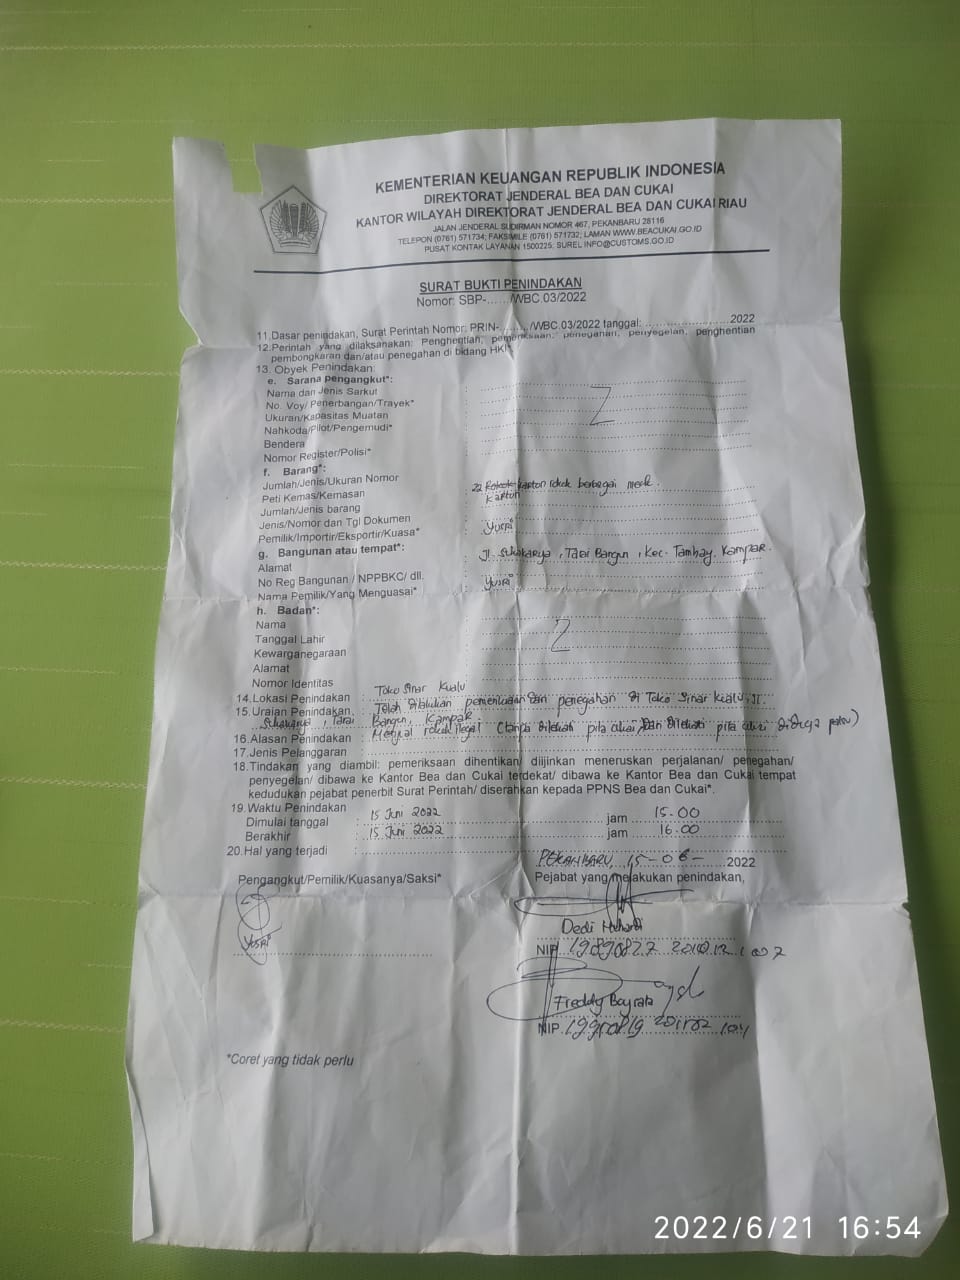 KEMENTERIAN KEUANGAN REPUBLIK INDONESIA
DIREKTORAT JENDERAL BEA DAN CUKAI
KANTOR WILAYAH DIREKTORAT JENDERAL BEA DAN CUKAI RIAU
JALAN JENDERAL SUDIRMAN NOMOR 467, PEKANBARU 28116
TELEPON (0761) 571734; FAKSIMILE (0761) 571732; LAMAN WWW.BEACUKAI.GO.ID
PUSAT KONTAK LAYANAN 1500225; SUREL INFO@CUSTOMS.GO.ID
SURAT BUKTI PENINDAKAN
Nomor: SBP-....../WBC.03/2022
11.Dasar penindakan, Surat Perintah Nomor: PRIN-......../WBC.03/2022 tanggal: ........................2022
12.Perintah yang dilaksanakan: Penghentian, pemeriksaan, penegahan, penyegelan, penghentian
pembongkaran dan/atau penegahan di bidang HKI*
13. Obyek Penindakan:
e. Sarana pengangkut*:
Nama dan Jenis Sarkut :
No. Voy/ Penerbangan/Trayek* :
Ukuran/Kapasitas Muatan :
Nahkoda/Pilot/Pengemudi* :
Bendera :
Nomor Register/Polisi* :
f. Barang*:
Jumlah/Jenis/Ukuran Nomor
Peti Kemas/Kemasan : 22 karton rokok berbagai merk.
Jumlah/Jenis barang : karton
Jenis/Nomor dan Tgl Dokumen :
Pemilik/Importir/Eksportir/Kuasa* : Yusri
g. Bangunan atau tempat*:
Alamat : Jl. Sukakarya, Tarai Bangun, Kec. Tambang, Kampar.
No Reg Bangunan / NPPBKC/ dll. :
Nama Pemilik/Yang Menguasai* : Yusri
h. Badan*:
Nama :
Tanggal Lahir :
Kewarganegaraan :
Alamat :
Nomor Identitas :
14.Lokasi Penindakan : Toko Sinar Kualu
15.Uraian Penindakan : Telah dilakukan pemeriksaan dan penegahan di Toko Sinar Kualu, Jl.
Sukakarya, Tarai Bangun, Kampar
16.Alasan Penindakan : Menjual rokok ilegal (tanpa dilekati pita cukai dan dilekati pita cukai diduga palsu)
17.Jenis Pelanggaran :
18.Tindakan yang diambil: pemeriksaan dihentikan/ diijinkan meneruskan perjalanan/ penegahan/
penyegelan/ dibawa ke Kantor Bea dan Cukai terdekat/ dibawa ke Kantor Bea dan Cukai tempat
kedudukan pejabat penerbit Surat Perintah/ diserahkan kepada PPNS Bea dan Cukai*.
19.Waktu Penindakan
Dimulai tanggal : 15 Juni 2022 jam : 15.00
Berakhir : 15 Juni 2022 jam : 16.00
20.Hal yang terjadi :
PEKANBARU, 15-06- 2022
Pengangkut/Pemilik/Kuasanya/Saksi* Pejabat yang melakukan penindakan,
Yusri
Dedi
NIP. 19890827 201012 1 007
Freddy
NIP.
*Coret yang tidak perlu
2022/6/21 16:54